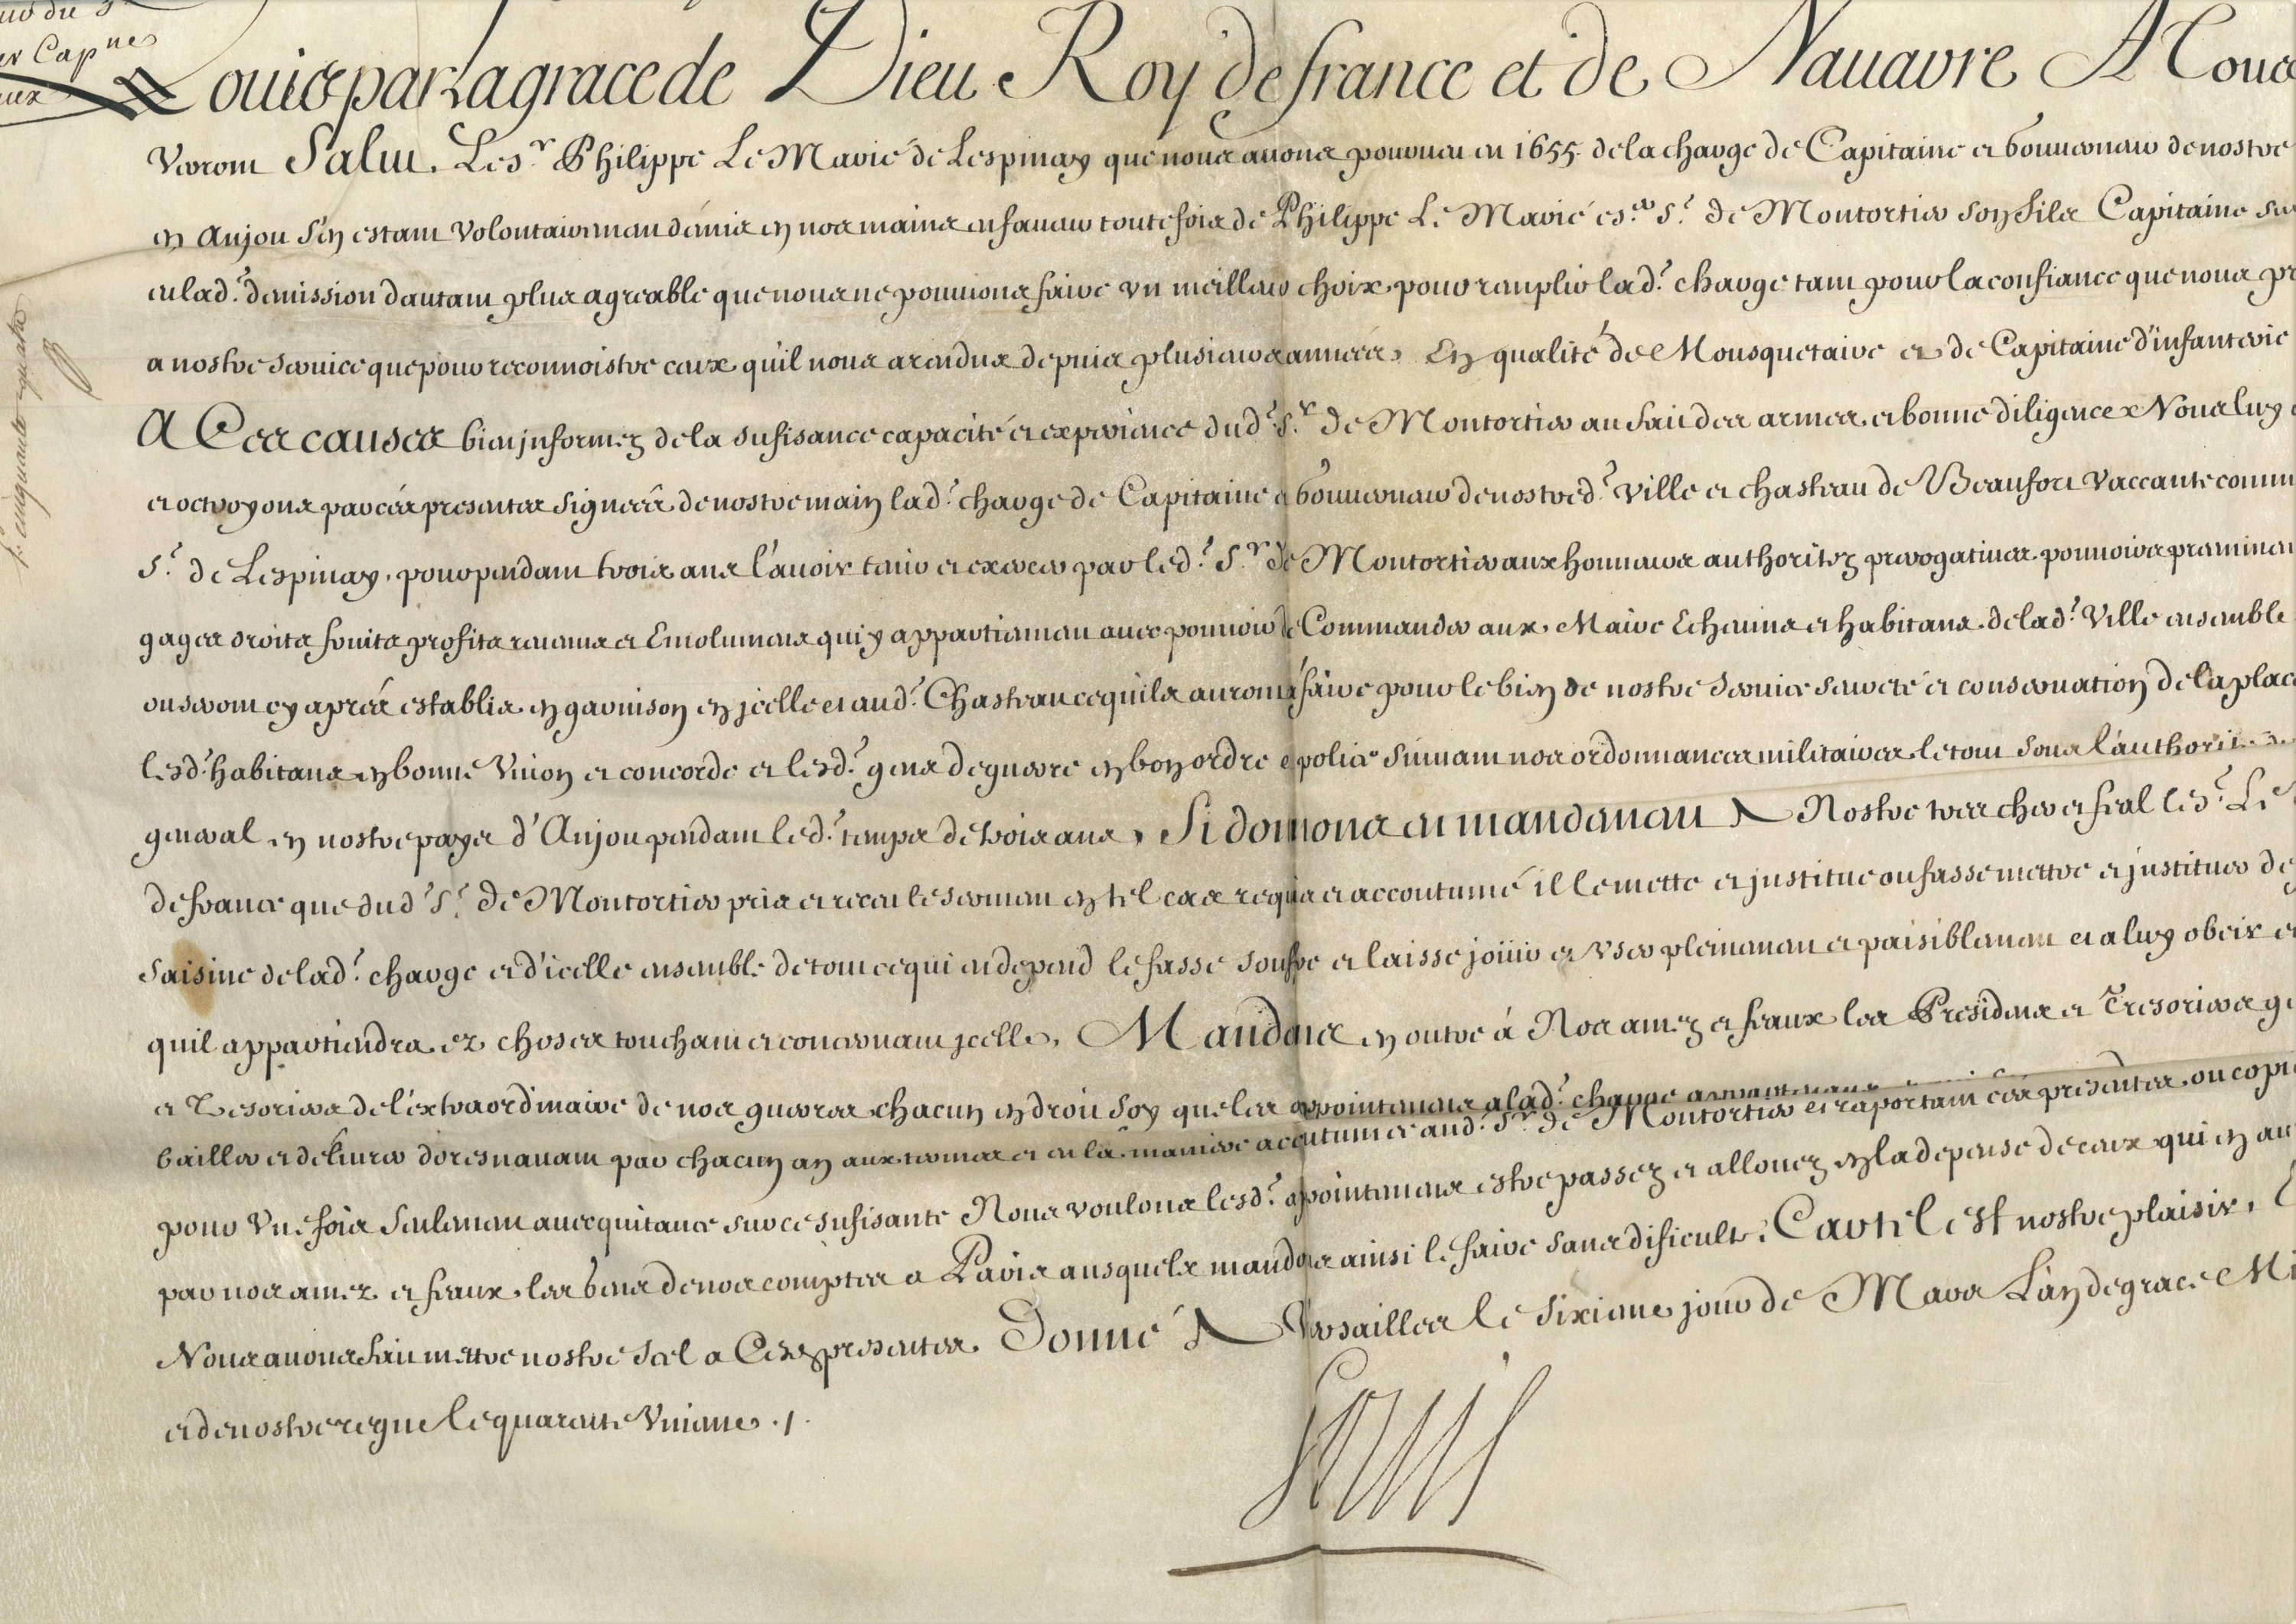 Louis par la grace de Dieu Roy de france et de Nauarre A Tous
Verront Salut. Le sr. Philippe Le Marié de Lespinay que nous auons pourueu en 1655 de la charge de Capitaine et Gouuerneur de nostre
en Anjou s'en estant volontairement démis en nos mains en faueur toutefois de Philippe Le Marié esr. Sr. de Montortier son fils Capitaine
eu lad. demission d'autant plus agreable que nous ne pouuions faire vn meilleur choix pour remplir lad. charge tant pour la confiance que nous
a nostre seruice que pour reconnoistre ceux qu'il nous a rendus depuis plusieurs années En qualité de Mousquetaire et de Capitaine d'infanterie
A Ces causes bien informez de la sufisance capacité et experience dud. Sr. de Montortier au fait des armes et bonne diligence Nous luy
et octroyons par ces presentes signées de nostre main lad. charge de Capitaine et Gouuerneur de nostred. ville et chasteau de Beaufort vaccante comm
Sr. de Lespinay, pour pendant trois ans l'auoir tenir et exercer par led. Sr. de Montortier aux honneurs authoritez prerogatiues pouuoirs preeminen
gages droits fruits profits reuenus et Emolumens qui y appartiennent auec pouuoir de Commander aux Maire Echeuins et habitans de lad. Ville ensemble
ou seront cy aprés establis en garnison en jcelle et aud. Chasteau ce qu'ils auront a faire pour le bien de nostre seruice seureté et conseruation de la place
lesd. habitans en bonne Vnion et concorde et lesd. gens de guerre en bon ordre et police suiuant nos ordonnances militaires le tout sous l'authorité
general en nostre pays d'Anjou pendant led. temps de trois ans, Si donnons en mandement A Nostre tres cher et feal le sr. Le
de france que dud. Sr. de Montortier pris et receu le serment en tel cas requis et accoutumé il le mette et jnstitue ou fasse mettre et jnstituer
saisine de lad. charge et d'icelle ensemble de tout ce qui en depend le fasse soufre et laisse joüir et vser pleinement et paisiblement et a luy obeir
quil appartiendra ez choses touchant et concernant jcelle, Mandons en outre á Nos amez et feaux les Presidens et Tresoriers
et Tresoriers de l'extraordinaire de nos guerres chacun en droit soy que les appointemens a lad. charge appartenans
bailler et deliurer doresnauant par chacun an aux termes et en la maniere accoutumée aud. Sr. de Montortier et raportant ces presentes ou copie
pour vne fois seulement auec quitance sur ce sufisante Nous voulons lesd. apointemens estre passez et allouez en la depense de ceux qui en
par nos amez et feaux les Gens de nos comptes a Paris ausquels mandons ainsi le faire sans dificulté, Car tel est nostre plaisir,
Nous auons fait mettre nostre scel a Cesd. presentes. Donné A Versailles le sixieme jour de Mars L'an de grace Mi
et de nostre regne le quarente Vnieme ./.
Louis